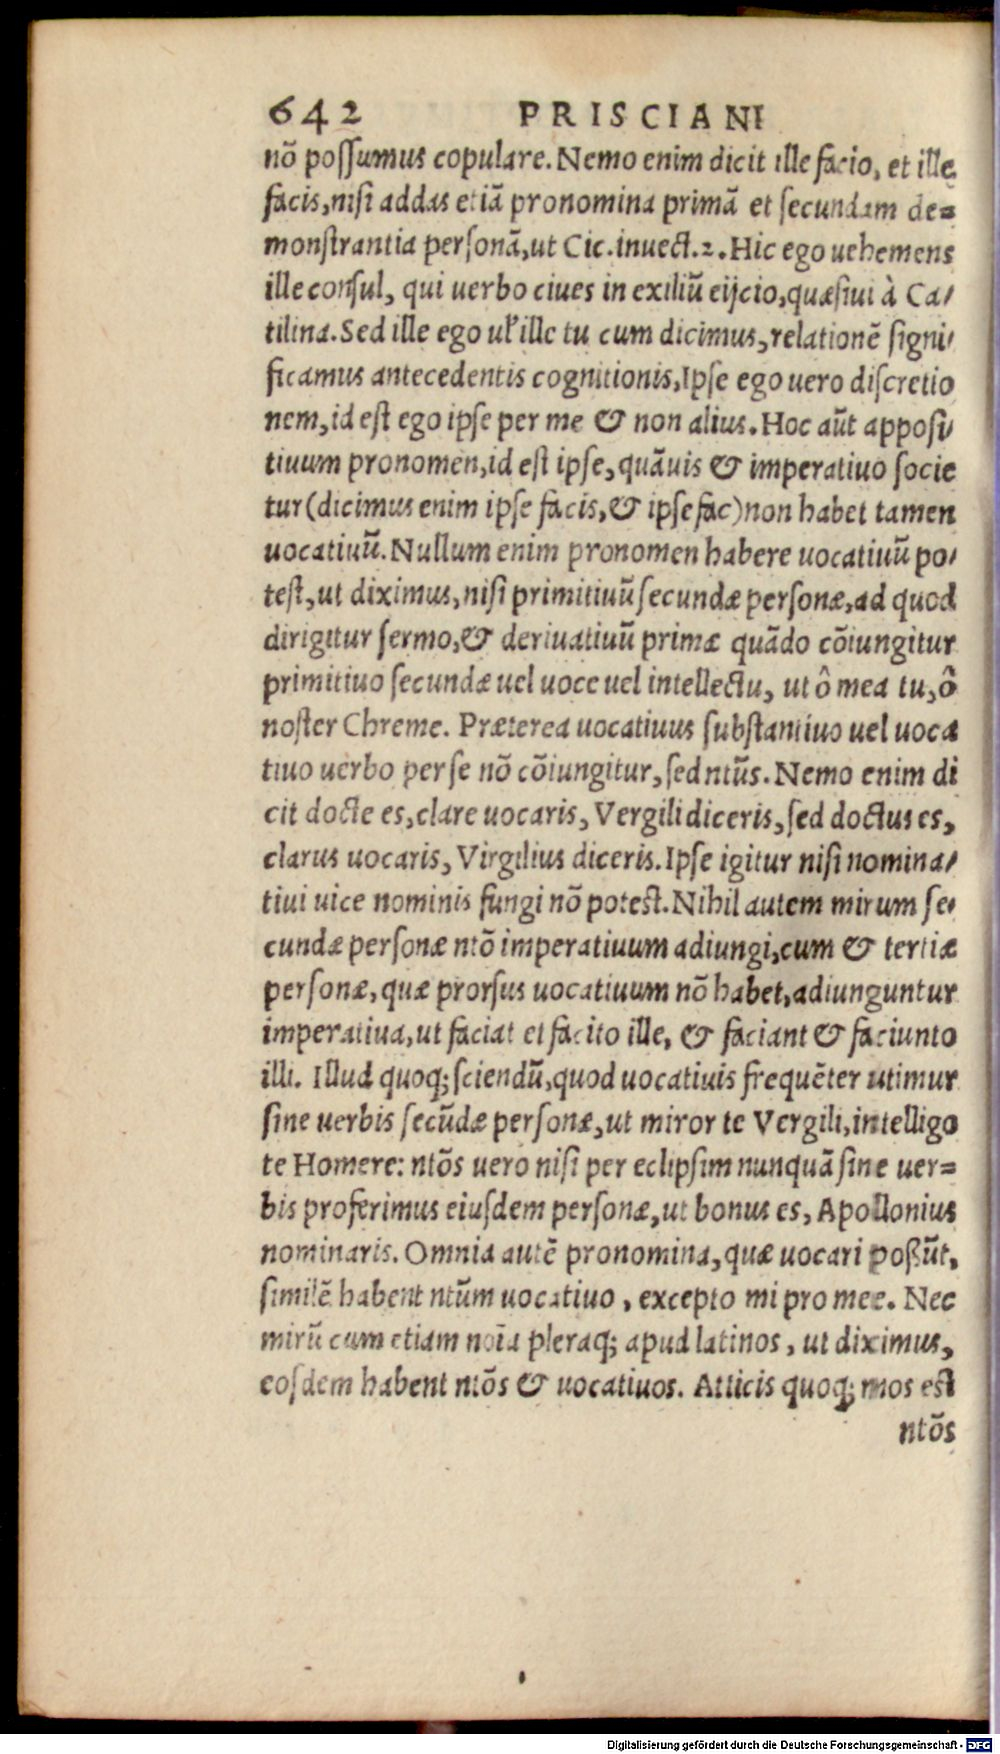 642 PRISCIANI
nō poſſumus copulare. Nemo enim dicit ille facio, et ille
facis, niſi addas etiā pronomina primā et ſecundam de=
monſtrantia perſonā, ut Cic. inuect. 2. Hic ego uehemens
ille conſul, qui uerbo ciues in exiliū eijcio, quæſiui à Ca/
tilina. Sed ille ego ul' ille tu cum dicimus, relationē ſigni/
ficamus antecedentis cognitionis, Ipſe ego uero diſcretio
nem, id eſt ego ipſe per me & non alius. Hoc aūt appoſi/
tiuum pronomen, id eſt ipſe, quāuis & imperatiuo ſocie
tur (dicimus enim ipſe facis, & ipſe fac) non habet tamen
uocatiuū. Nullum enim pronomen habere uocatiuū po/
teſt, ut diximus, niſi primitiuū ſecundæ perſonæ, ad quod
dirigitur ſermo, & deriuatiuū primæ quādo cōiungitur
primitiuo ſecundæ uel uoce uel intellectu, ut ô mea tu, ô
noſter Chreme. Præterea uocatiuus ſubſtantiuo uel uoca
tiuo uerbo per ſe nō cōiungitur, ſed ntūs. Nemo enim di
cit docte es, clare uocaris, Vergili diceris, ſed doctus es,
clarus uocaris, Virgilius diceris. Ipſe igitur niſi nomina/
tiui uice nominis fungi nō poteſt. Nihil autem mirum ſe/
cundæ perſonæ ntō imperatiuum adiungi, cum & tertiæ
perſonæ, quæ prorſus uocatiuum nō habet, adiunguntur
imperatiua, ut faciat et facito ille, & faciant & faciunto
illi. Illud quoq; ſciendū, quod uocatiuis frequēter utimur
ſine uerbis ſecūdæ perſonæ, ut miror te Vergili, intelligo
te Homere: ntōs uero niſi per eclipſim nunquā ſine uer=
bis proferimus eiuſdem perſonæ, ut bonus es, Apollonius
nominaris. Omnia autē pronomina, quæ uocari poßūt,
ſimilē habent ntūm uocatiuo, excepto mi pro mee. Nec
mirū cum etiam noīa pleraq; apud latinos, ut diximus,
eoſdem habent ntōs & uocatiuos. Atticis quoq; mos eſt
ntōs
Digitalisierung gefördert durch die Deutsche Forschungsgemeinschaft - DFG